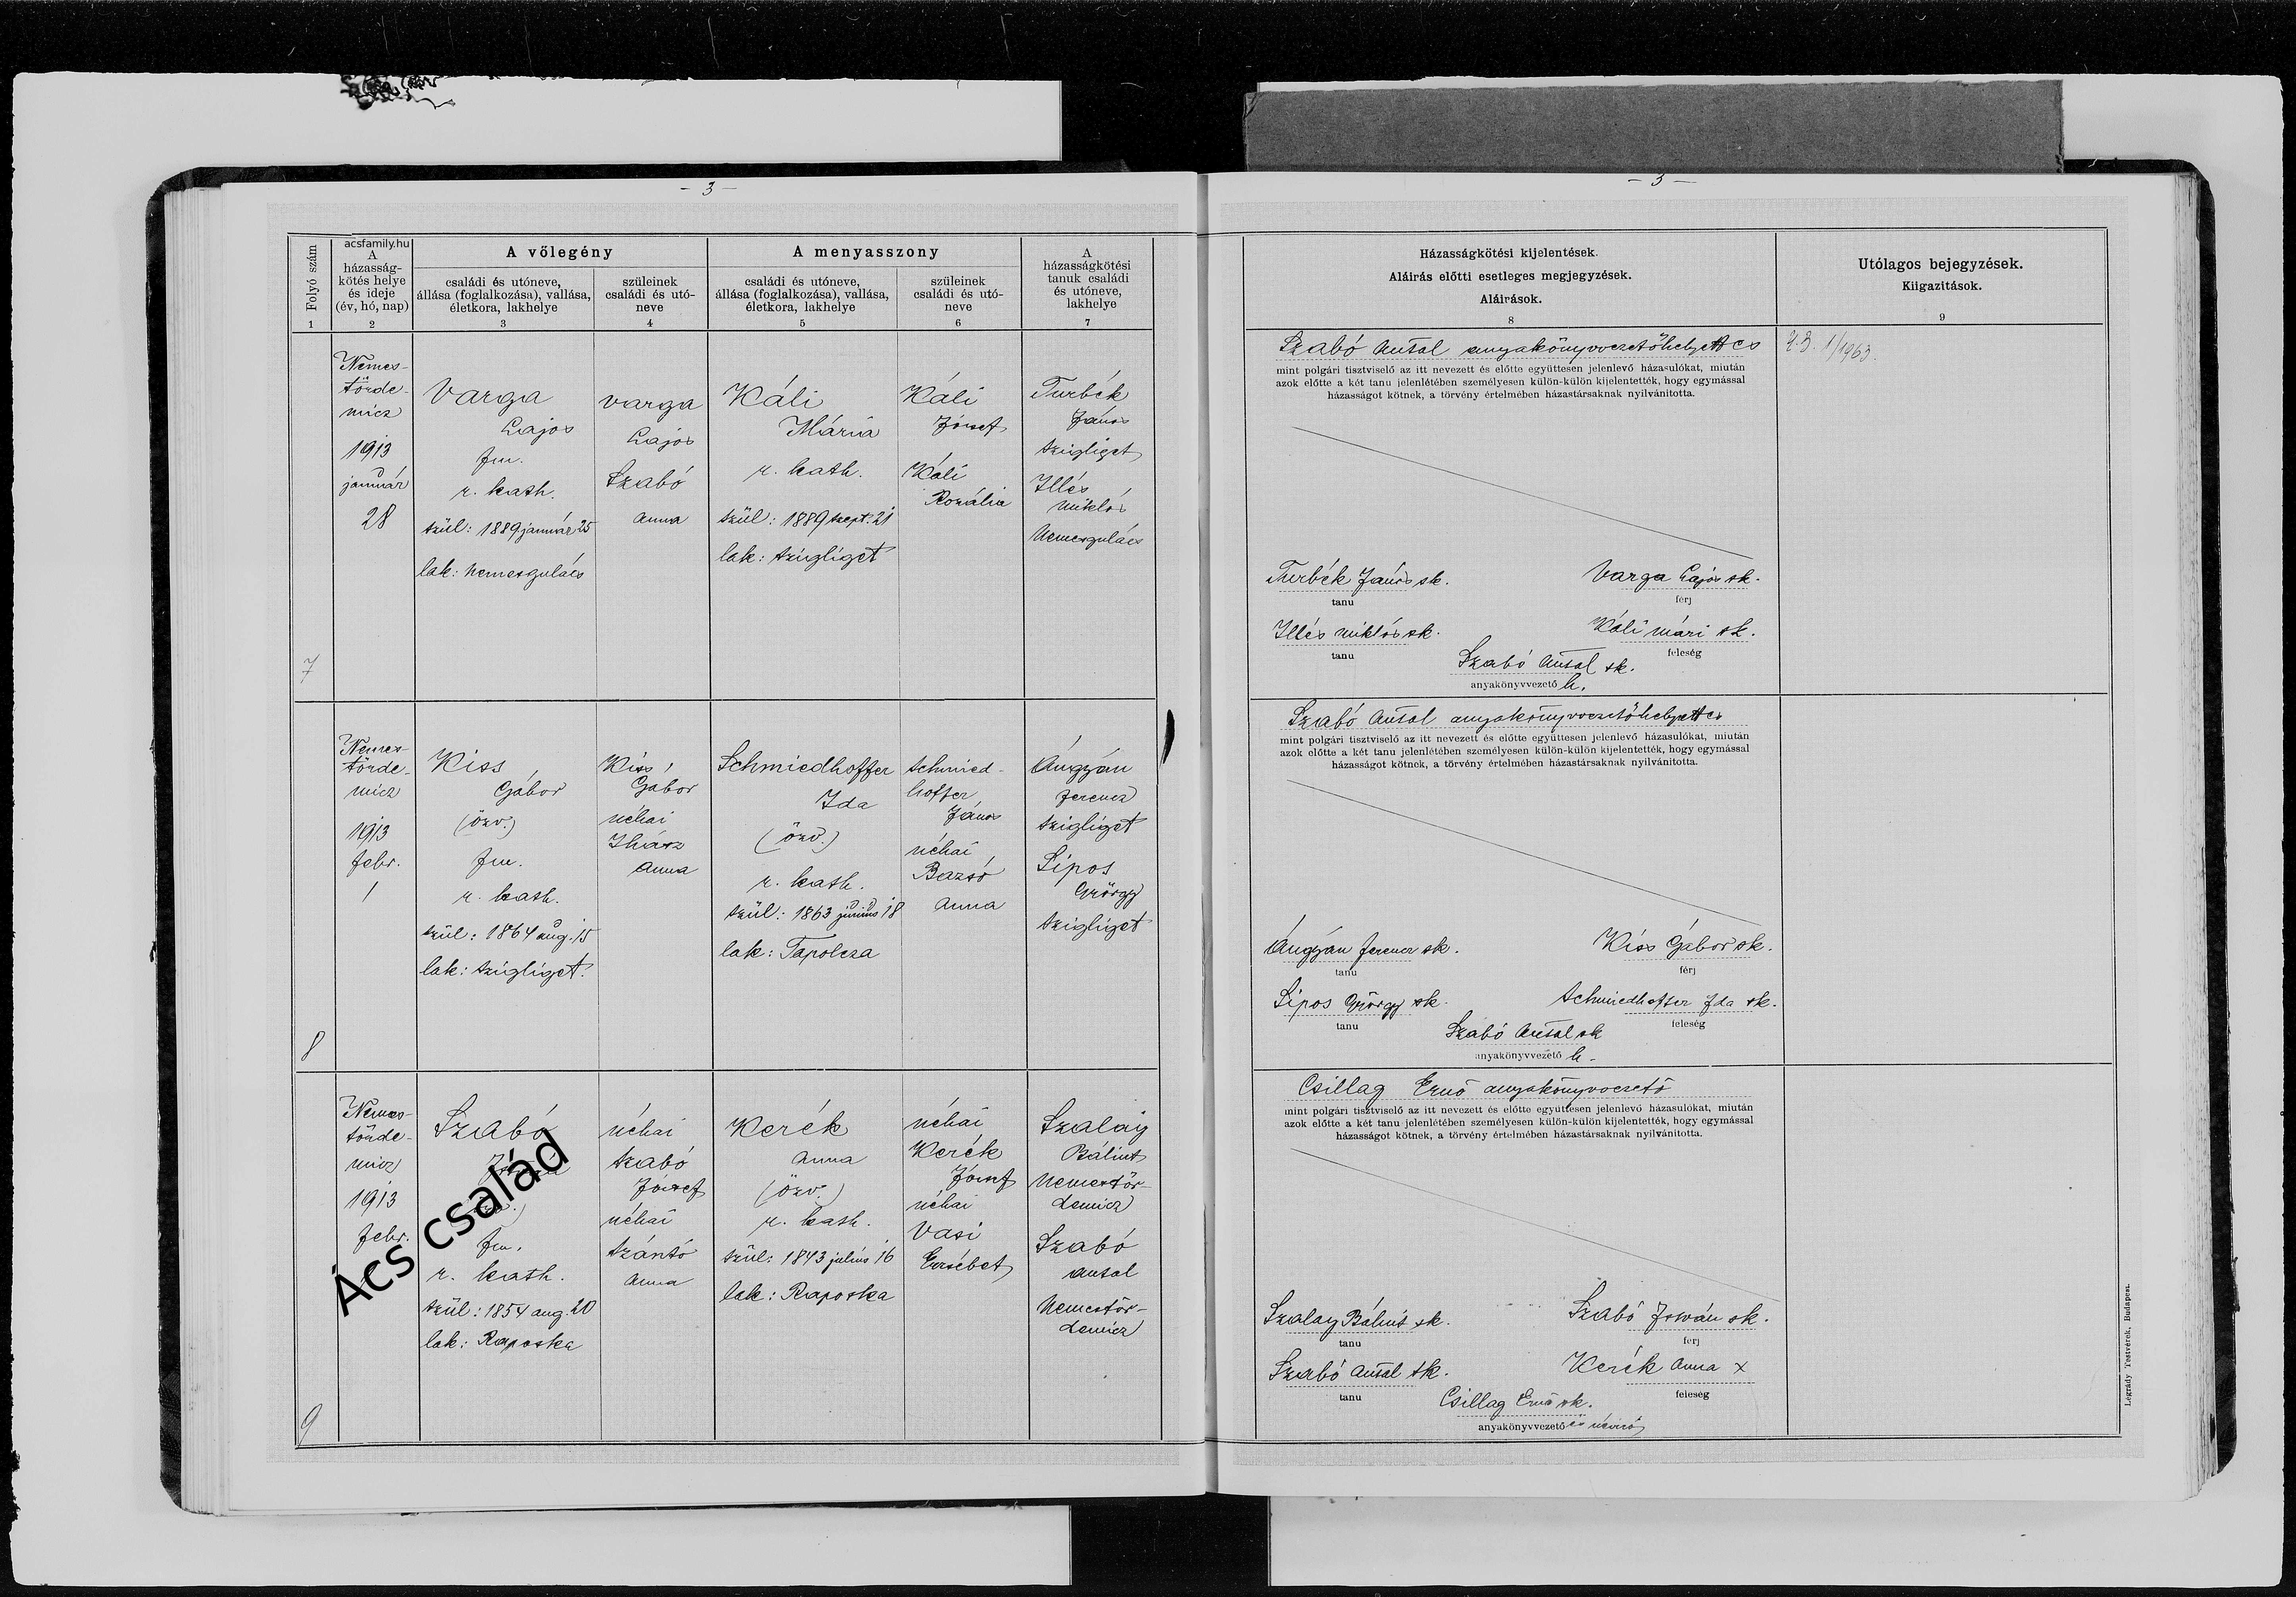 - 3 -
Folyó szám
1
acsfamily.hu
A
házasság-
kötés helye
és ideje
(év, hó, nap)
2
A vőlegény
családi és utóneve,
állása (foglalkozása), vallása,
életkora, lakhelye
3
szüleinek
családi és utó-
neve
4
A menyasszony
családi és utóneve,
állása (foglalkozása), vallása,
életkora, lakhelye
5
szüleinek
családi és utó-
neve
6
A
házasságkötési
tanuk családi
és utóneve,
lakhelye
7
7
Nemes-
törde-
micz
1913
január
28
Varga
Lajos
fm.
r. kath.
szül: 1889 január 25
lak: Nemesgulács
Varga
Lajos
Szabó
Anna
Káli
Mária
r. kath.
szül: 1889 szept. 21
lak: Szigliget
Káli
József
Káli
Rozália
Turbék
János
Szigliget
Illés
Miklós
Nemesgulács
8
Nemes-
törde-
micz
1913
febr.
1
Kiss
Gábor
(özv.)
fm.
r. kath.
szül: 1864 aug. 15
lak: Szigliget.
Kiss
Gábor
néhai
Ihász
Anna
Schmiedhoffer
Ida
(özv.)
r. kath.
szül: 1863 június 18
lak: Tapolcza
Schmied-
hoffer
János
néhai
Bazsó
Anna
Ángyán
Ferencz
Szigliget
Sipos
György
Szigliget
9
Nemes-
törde-
micz
1913
febr.
Szabó
fm.
r. kath.
szül: 1854 aug. 20
lak: Raposka
néhai
Szabó
József
néhai
Szántó
Anna
Kerék
Anna
(özv.)
r. kath.
szül: 1843 július 16
lak: Raposka
néhai
Kerék
József
néhai
Vasi
Erzsébet
Szalay
Bálint
Nemestör-
demicz
Szabó
Antal
Nemestör-
demicz
Ács család
- 3 -
Házasságkötési kijelentések.
Aláirás előtti esetleges megjegyzések.
Aláirások.
8
Utólagos bejegyzések.
Kiigazitások.
9
Szabó Antal anyakönyvvezetőhelyettes
mint polgári tisztviselő az itt nevezett és előtte együttesen jelenlevő házasulókat, miután
azok előtte a két tanu jelenlétében személyesen külön-külön kijelentették, hogy egymással
házasságot kötnek, a törvény értelmében házastársaknak nyilvánitotta.
1/1963.
Turbék János sk.
tanu
Varga Lajos sk.
férj
Illés Miklós sk.
tanu
Káli Mári sk.
feleség
Szabó Antal sk.
anyakönyvvezető h.
Szabó Antal anyakönyvvezetőhelyettes
mint polgári tisztviselő az itt nevezett és előtte együttesen jelenlevő házasulókat, miután
azok előtte a két tanu jelenlétében személyesen külön-külön kijelentették, hogy egymással
házasságot kötnek, a törvény értelmében házastársaknak nyilvánitotta.
Ángyán Ferencz sk.
tanu
Kiss Gábor sk.
férj
Sipos György sk.
tanu
Schmiedhoffer Ida sk.
feleség
Szabó Antal sk
anyakönyvvezető h.
Csillag Ernő anyakönyvvezető
mint polgári tisztviselő az itt nevezett és előtte együttesen jelenlevő házasulókat, miután
azok előtte a két tanu jelenlétében személyesen külön-külön kijelentették, hogy egymással
házasságot kötnek, a törvény értelmében házastársaknak nyilvánitotta.
Szalay Bálint sk.
tanu
Szabó István sk.
férj
Szabó Antal sk.
tanu
Kerék Anna x
feleség
Csillag Ernő sk.
anyakönyvvezető és névíró
Légrády Testvérek, Budapest.